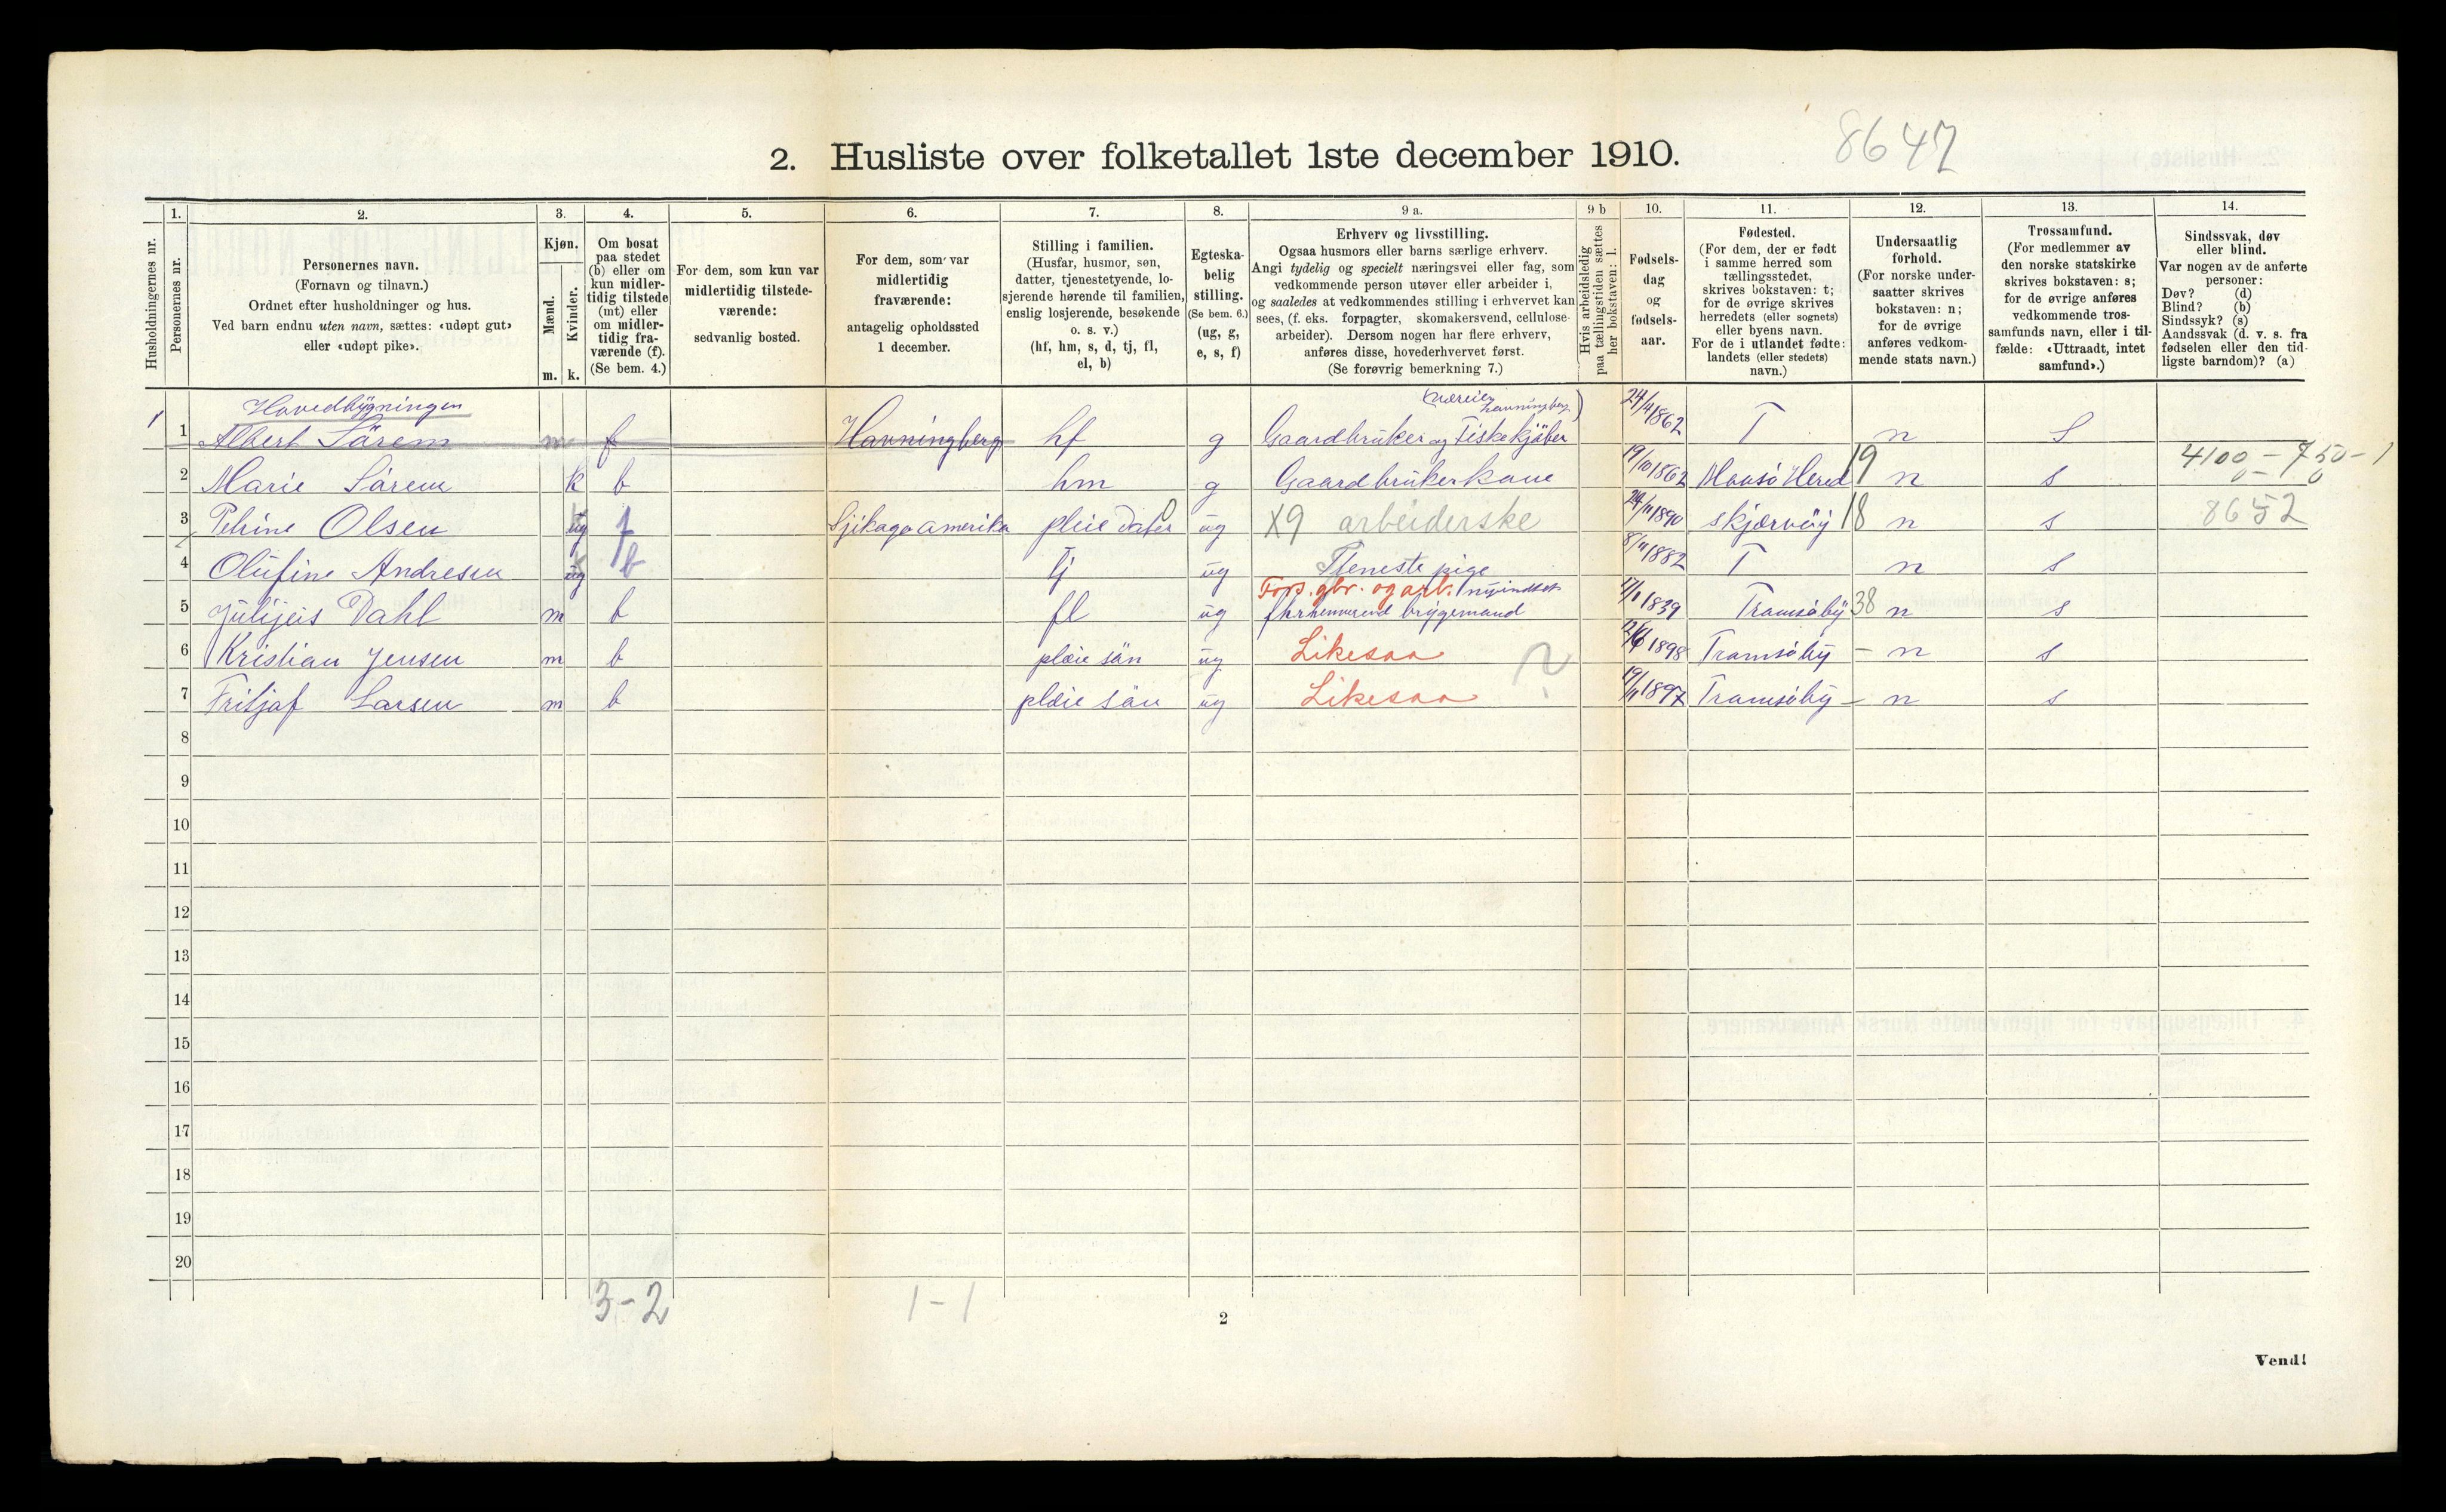 8647
2. Husliste over folketallet 1ste december 1910.
Husholdningernes nr.
1.
Personernes nr.
2.
Personernes navn.
(Fornavn og tilnavn.)
Ordnet efter husholdninger og hus.
Ved barn endnu uten navn, sættes: «udøpt gut»
eller «udøpt pike».
3.
Kjøn.
Mænd.
Kvinder.
m. k.
4.
Om bosat
paa stedet
(b) eller om
kun midler-
tidig tilstede
(mt) eller
om midler-
tidig fra-
værende (f).
(Se bem. 4.)
5.
For dem, som kun var
midlertidig tilstede-
værende:
sedvanlig bosted.
6.
For dem, som var
midlertidig
fraværende:
antagelig opholdssted
1 december.
7.
Stilling i familien.
(Husfar, husmor, søn,
datter, tjenestetyende, lo-
sjerende hørende til familien,
enslig losjerende, besøkende
o. s. v.)
(hf, hm, s, d, tj, fl,
el, b)
8.
Egteska-
belig
stilling.
(Se bem. 6.)
(ug, g,
e, s, f)
9 a.
Erhverv og livsstilling.
Ogsaa husmors eller barns særlige erhverv.
Angi tydelig og specielt næringsvei eller fag, som
vedkommende person utøver eller arbeider i,
og saaledes at vedkommendes stilling i erhvervet kan
sees, (f. eks. forpagter, skomakersvend, cellulose-
arbeider). Dersom nogen har flere erhverv,
anføres disse, hovederhvervet først.
(Se forøvrig bemerkning 7.)
9 b
Hvis arbeidsledig
paa tællingstiden sættes
her bokstaven: l.
10.
Fødsels-
dag
og
fødsels-
aar.
11.
Fødested.
(For dem, der er født
i samme herred som
tællingsstedet,
skrives bokstaven: t;
for de øvrige skrives
herredets (eller sognets)
eller byens navn.
For de i utlandet fødte:
landets (eller stedets)
navn.)
12.
Undersaatlig
forhold.
(For norske under-
saatter skrives
bokstaven: n;
for de øvrige
anføres vedkom-
mende stats navn.)
13.
Trossamfund.
(For medlemmer av
den norske statskirke
skrives bokstaven: s;
for de øvrige anføres
vedkommende tros-
samfunds navn, eller i til-
fælde: «Uttraadt, intet
samfund».)
14.
Sindssvak, døv
eller blind.
Var nogen av de anførte
personer:
Døv? (d)
Blind? (b)
Sindssyk? (s)
Aandssvak (d. v. s. fra
fødselen eller den tid-
ligste barndom)? (a)
Hovedbygningen
1 1 Albert Sörem m f Havningberg hf g Gaardbruker og Fiskekjöber 24/4 1862 T n S
4100 - 750 - 1
2 Marie Sörem k b hm g Gaardbrukerkone 19/10 1862 Maasö Hered 19 n s
3 Petrine Olsen ug f Sjikago amerika pleie dater ug X9 arbeiderske 24/11 1890 skjærvöy 18 n s 8652
4 Olufine Andresen ug b tj ug Tjeneste pige 8/11 1882 T n s
Fors. gbr. og arb.
5 Julijus Dahl m b fl ug brygemand 1839 Tromsöby 38 n s
6 Kristian Jensen m b pleie sön ug Likesaa ? 1898 Tromsöby - n s
7 Fritjof Larsen m b pleie sön ug Likesaa 19/11 1897 Tromsöby - n s
8
9
10
11
12
13
14
15
16
17
18
19
20
3-2
1-1
2
Vend!